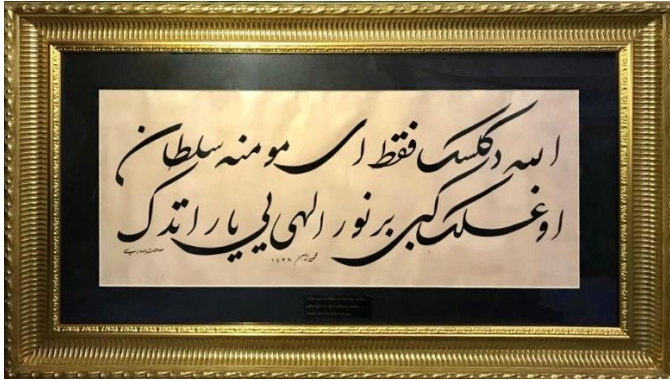 الله دگلسک فقط ای مومنه سلطان
اوغلک کبی بر نور الهی یی یاراتدک
١٤٣٨